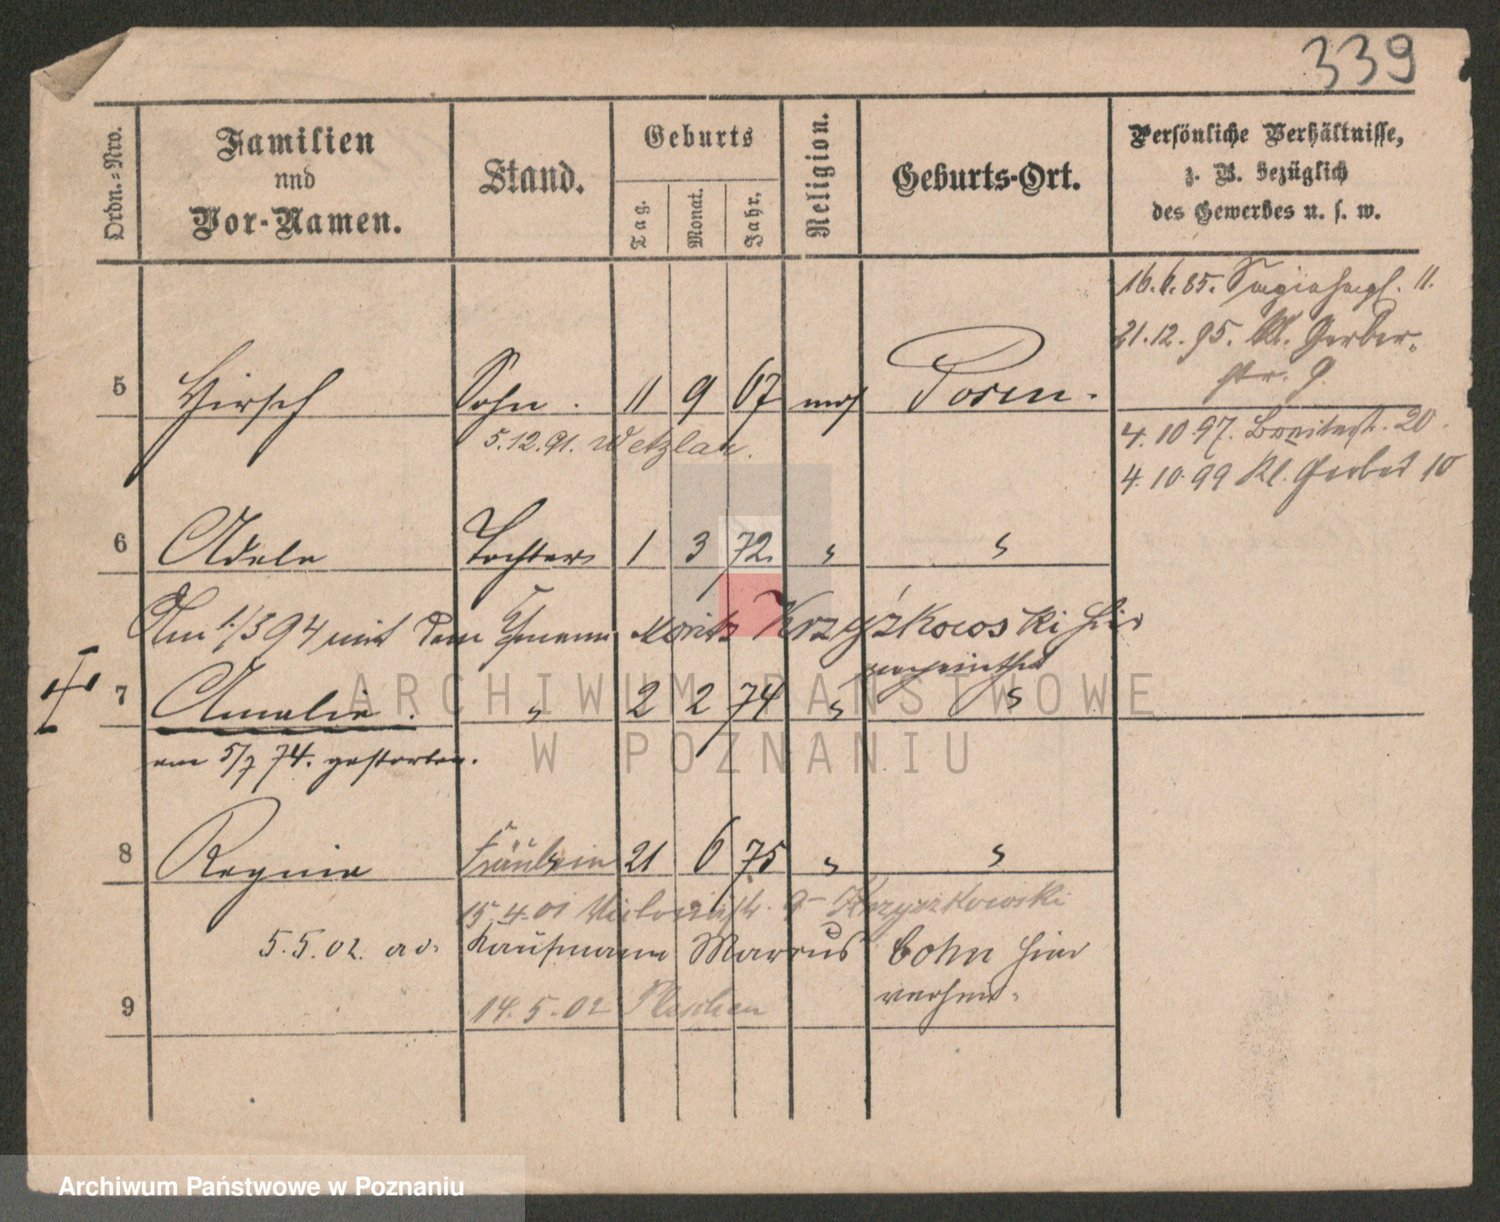 339
Ordn.-Nro.
Familien
und
Vor-Namen.
Stand.
Geburts
Tag.
Monat.
Jahr.
Religion.
Geburts-Ort.
Persönliche Verhältnisse,
z. B. bezüglich
des Gewerbes u. s. w.
16.6.85. 11.
21.12.95. Kl. Gerber-
str. 9.
5 Hirsch Sohn. 11 9 67 mos Posen.
5.12.91. Wetzlar.
4.10.97. Breitestr. 20.
4.10.99 Kl. Gerber 10
6 Adele Tochter 1 3 72. " "
Am 1/3 94 mit dem Moritz Krzyżkowski hier
verheirathet
7 Amalie. " 2 2 74 " "
am 5/7 74. gestorben.
8 Regina Fräulein 21 6 75 " "
15.4.01 9 Krzyzkowski
5.5.02. Kaufmann Marcus Cohn hier
verheir.
9 14.5.02 Pleschen
ARCHIWUM PAŃSTWOWE
W POZNANIU
Archiwum Państwowe w Poznaniu